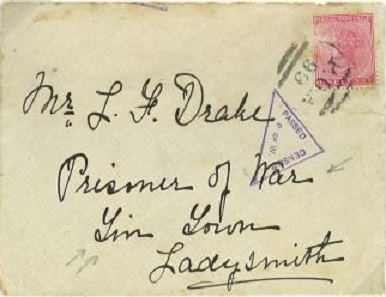 Mr. L. F. Drake
Prisoner of War
Tin Town
Ladysmith
PASSED
CENSOR
P OF W.
99